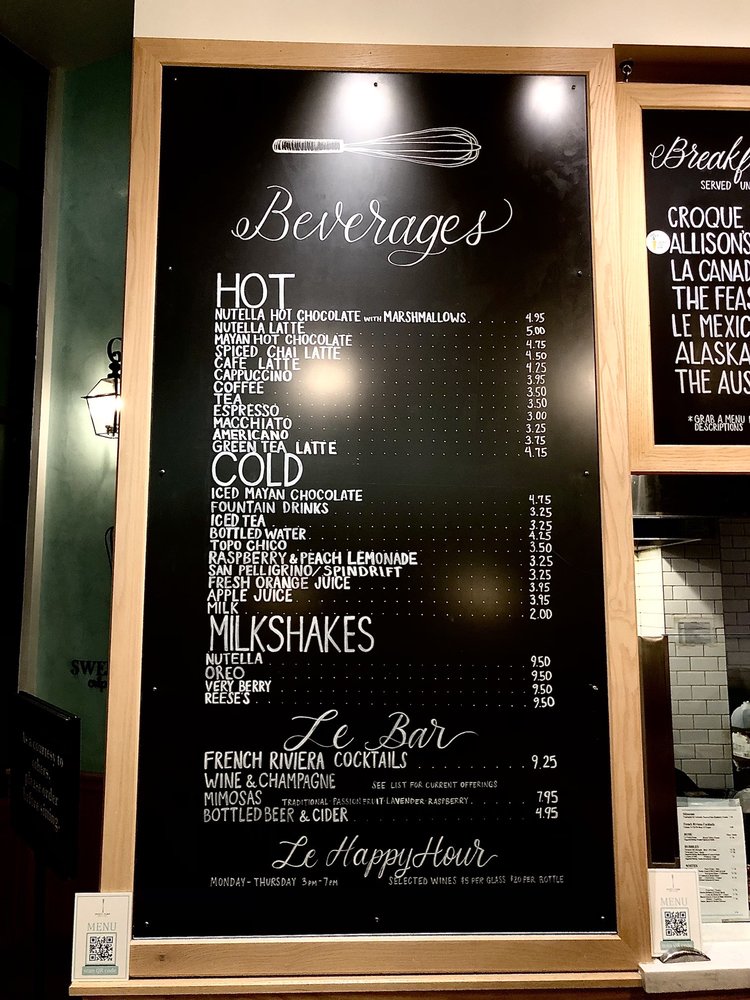 Beverages
HOT
NUTELLA HOT CHOCOLATE WITH MARSHMALLOWS 4.95
NUTELLA LATTE 5.00
MAYAN HOT CHOCOLATE 4.75
SPICED CHAI LATTE 4.50
CAFE LATTE 4.25
CAPPUCCINO 3.95
COFFEE 3.50
TEA 3.50
ESPRESSO 3.00
MACCHIATO 3.25
AMERICANO 3.75
GREEN TEA LATTE 4.75
COLD
ICED MAYAN CHOCOLATE 4.75
FOUNTAIN DRINKS 3.25
ICED TEA 3.25
BOTTLED WATER 4.25
TOPO CHICO 3.50
RASPBERRY & PEACH LEMONADE 3.25
SAN PELLIGRINO/SPINDRIFT 3.25
FRESH ORANGE JUICE 3.95
APPLE JUICE 3.95
MILK 2.00
MILKSHAKES
NUTELLA 9.50
OREO 9.50
VERY BERRY 9.50
REESE'S 9.50
Le Bar
FRENCH RIVIERA COCKTAILS 9.25
WINE & CHAMPAGNE SEE LIST FOR CURRENT OFFERINGS
MIMOSAS TRADITIONAL-PASSIONFRUIT-LAVENDER-RASPBERRY 7.95
BOTTLED BEER & CIDER 4.95
Le Happy Hour
MONDAY-THURSDAY 3PM-7PM SELECTED WINES $5 PER GLASS $20 PER BOTTLE
Breakf
SERVED UN
CROQUE
ALLISON'S
LA CANAD
THE FEAS
LE MEXIC
ALASKA
THE AUS
*GRAB A MENU
DESCRIPTIONS
SWE
MENU
scan QR code
MENU